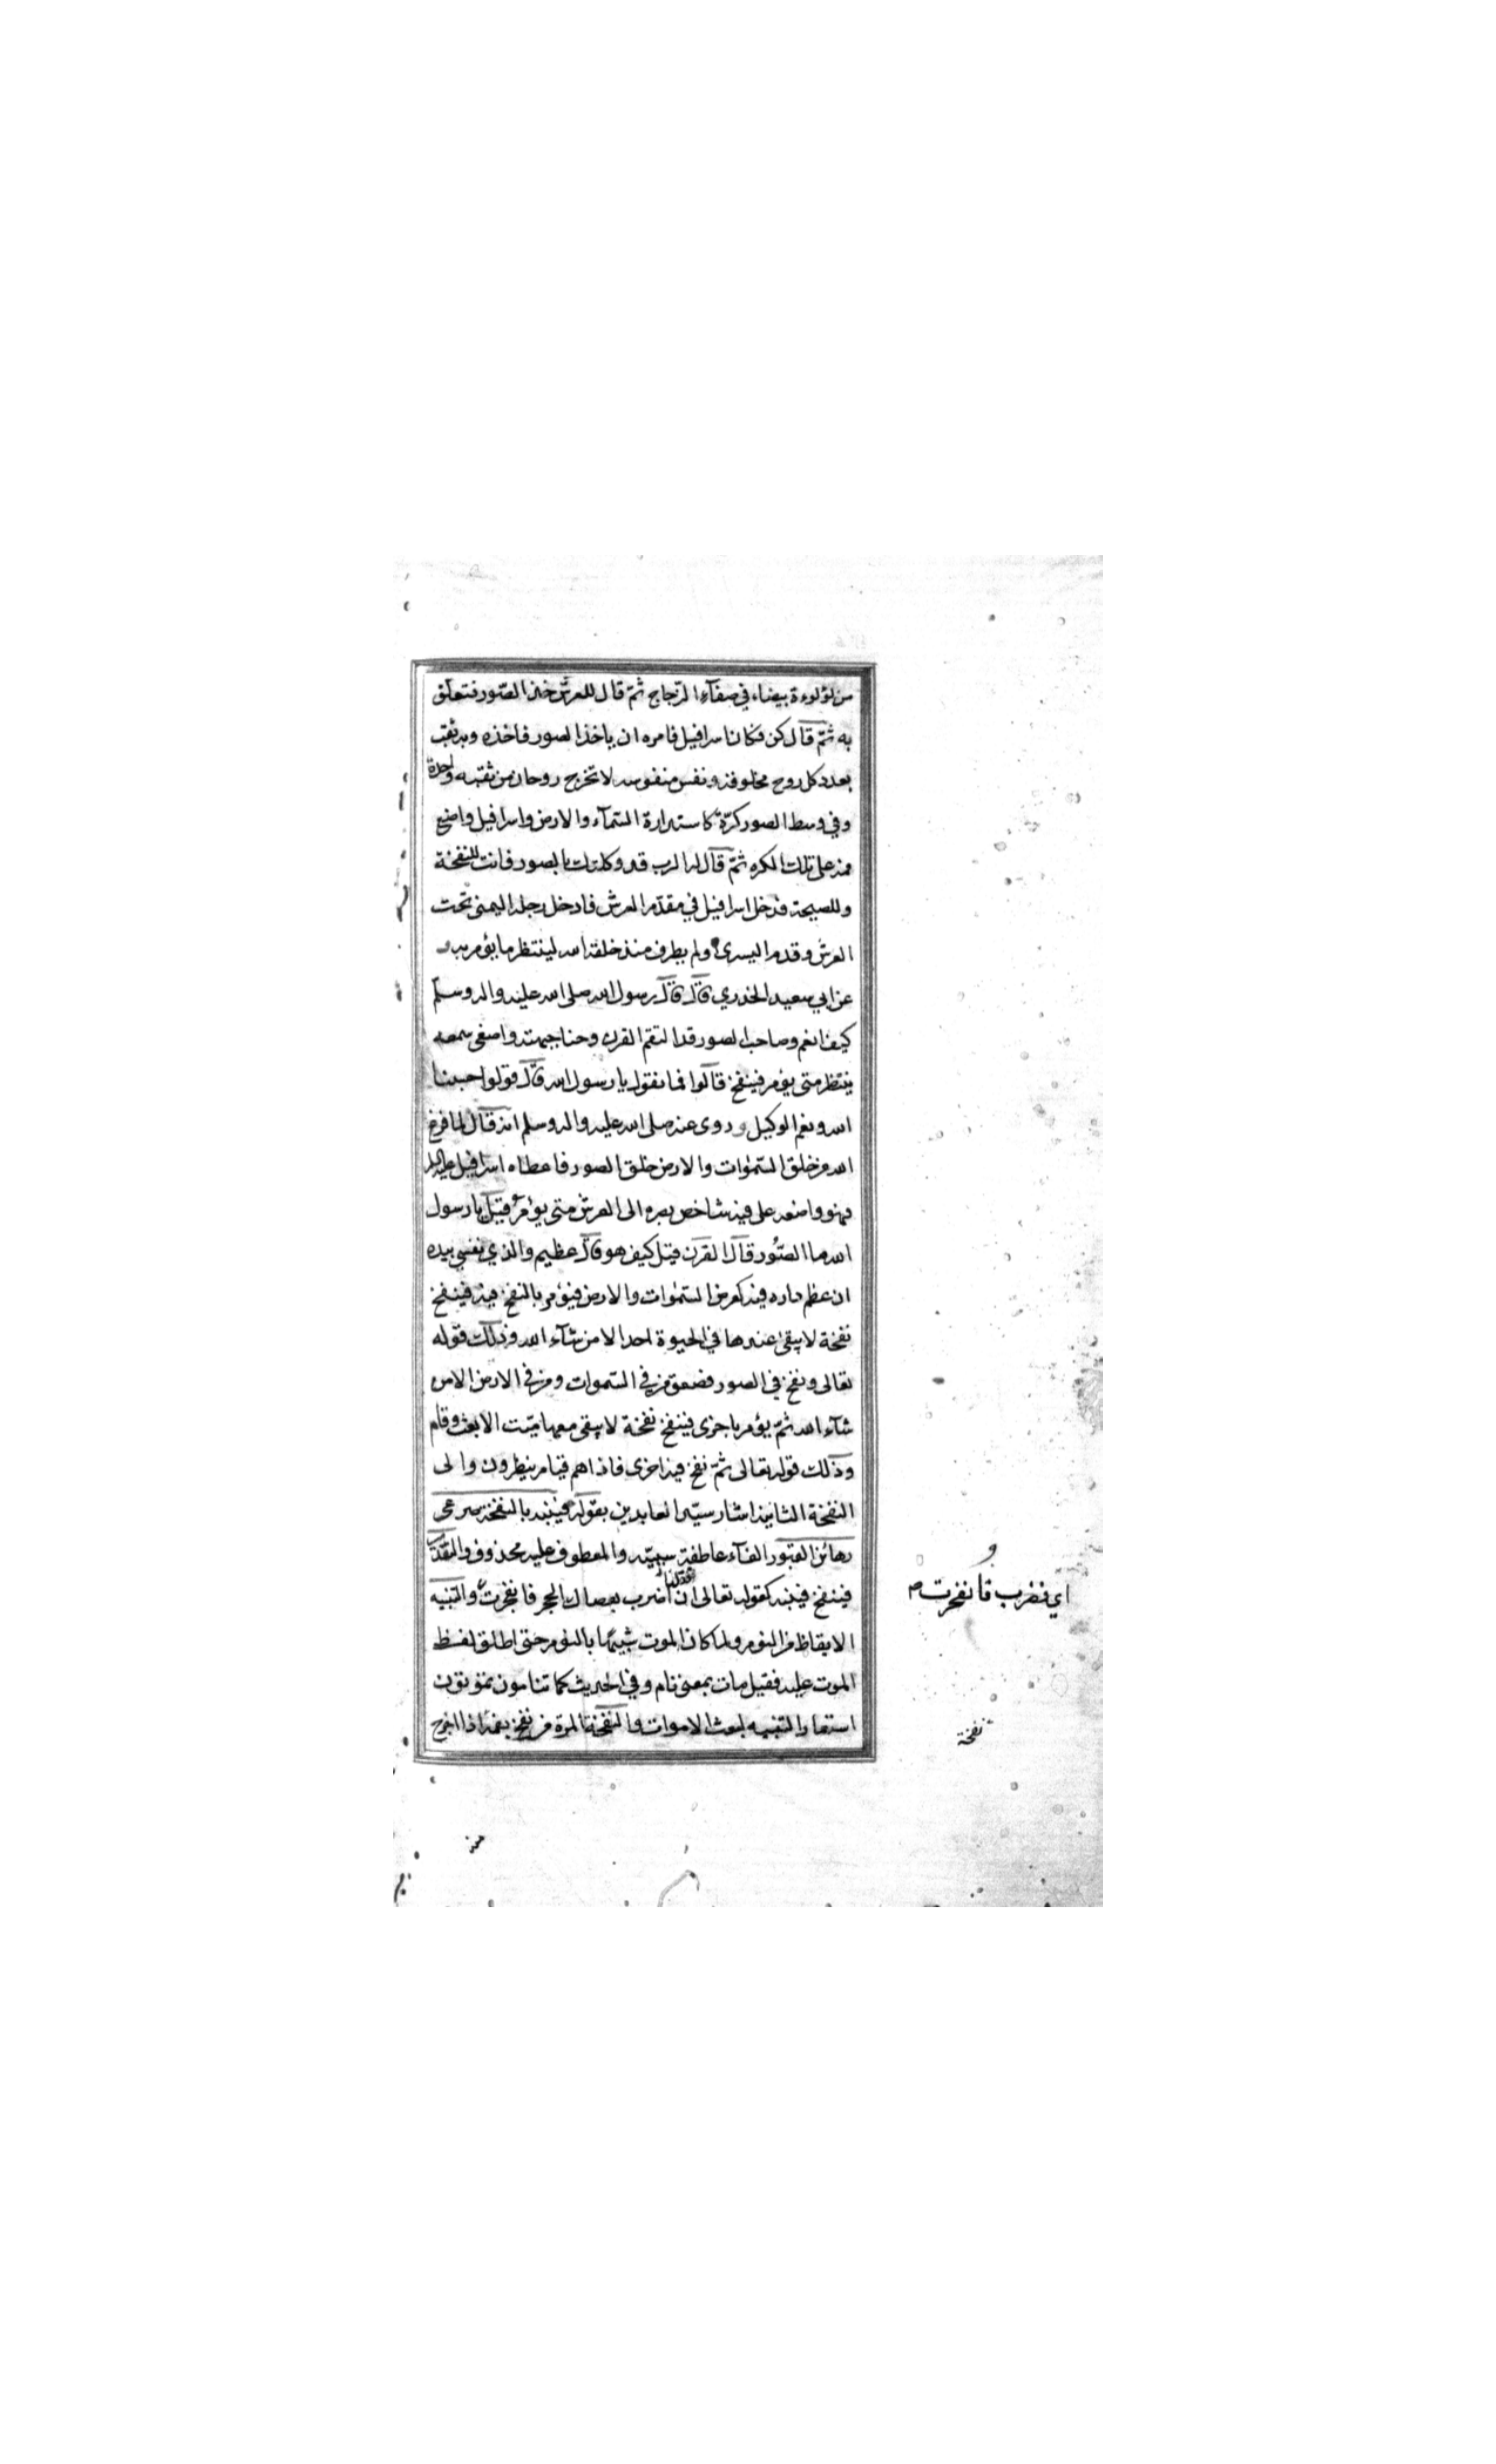 من لؤلوءة بيضاء في صفآء الزجاج ثمّ قال للعرش خذ الصّور فتعلّق
به ثمّ قال كن فكان اسرافيل فامره ان ياخذ الصور فاخذه وبه ثقب
بعدد كل روح مخلوقة ونفس منفوسه لا تخرج روحان من ثقبه واحدة
وفي وسط الصور كرّة كاستدارة السّمآء والارض واسرافيل واضع
فمه على تلك الكره ثمّ قال له الرب قد وكلتك بالصور فانت للنفخة
وللصيحة فدخل اسرافيل في مقدّم العرش فادخل رجله اليمنى تحت
العرش وقدم اليسرى ولم يطرف منذ خلقه الله لينتظر ما يؤمر به و
عن ابي سعيد الخدري قال قال رسول الله صلى الله عليه واله وسلّم
كيف انعم وصاحب الصور قد التقم القرن وحنا جبهته واصغى سمعه
ينتظر متى يؤمر فينفخ قالوا فما نقول يا رسول الله قال قولوا حسبنا
الله ونعم الوكيل وروى عنه صلى الله عليه واله وسلم انه قال لما فرغ
الله من خلق السّموات والارض خلق الصور فاعطاه اسرافيل
فهو واضعه على فيه شاخص بصره الى العرش متى يؤمر قيل يا رسول
الله ما الصّور قال القرن قيل كيف هو قال عظيم والذي نفسي بيده
ان عظم داره فيه كعرض السّموات والارض فيؤمر بالنفخ فيه فينفخ
نفخة لا يبقى عندها في الحيوة احد الا من شآء الله وذلك قوله
تعالى ونفخ في الصور فصعق من في السّموات ومن في الارض الا من
شآء الله ثمّ يؤمر باخرى فينفخ نفخة لا يبقى معها ميّت الا بعث وقام
وذلك قوله تعالى ثمّ نفخ فيه اخرى فاذا هم قيام ينظرون والى
النفخة الثانية اشار سيّد العابدين بقوله فينبه بالنفخة صرعى
رهائن القبور الفآء عاطفة سببيّه والمعطوف عليه محذوف والتقدير
فينفخ فينبه كقوله تعالى فقلنا ان اضرب بعصاك الحجر فانفجرت والتنبيه
اي فضرب فانفجرت
الايقاظ من النوم ولما كان الموت شبيهًا بالنوم حتى اطلق لفظ
الموت عليه فقيل مات بمعنى نام وفي الحديث كما تنامون تموتون
استعار التنبيه لبعث الاموات والنفخة المرة من نفخ بفمه اذا اخرج
نفخة